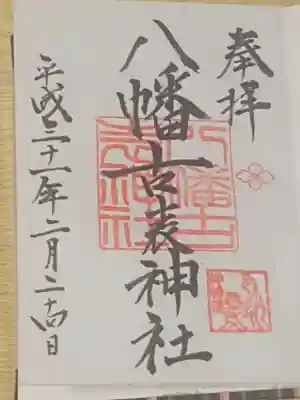 奉拝
八幡古表神社
平成三十一年二月二十四日